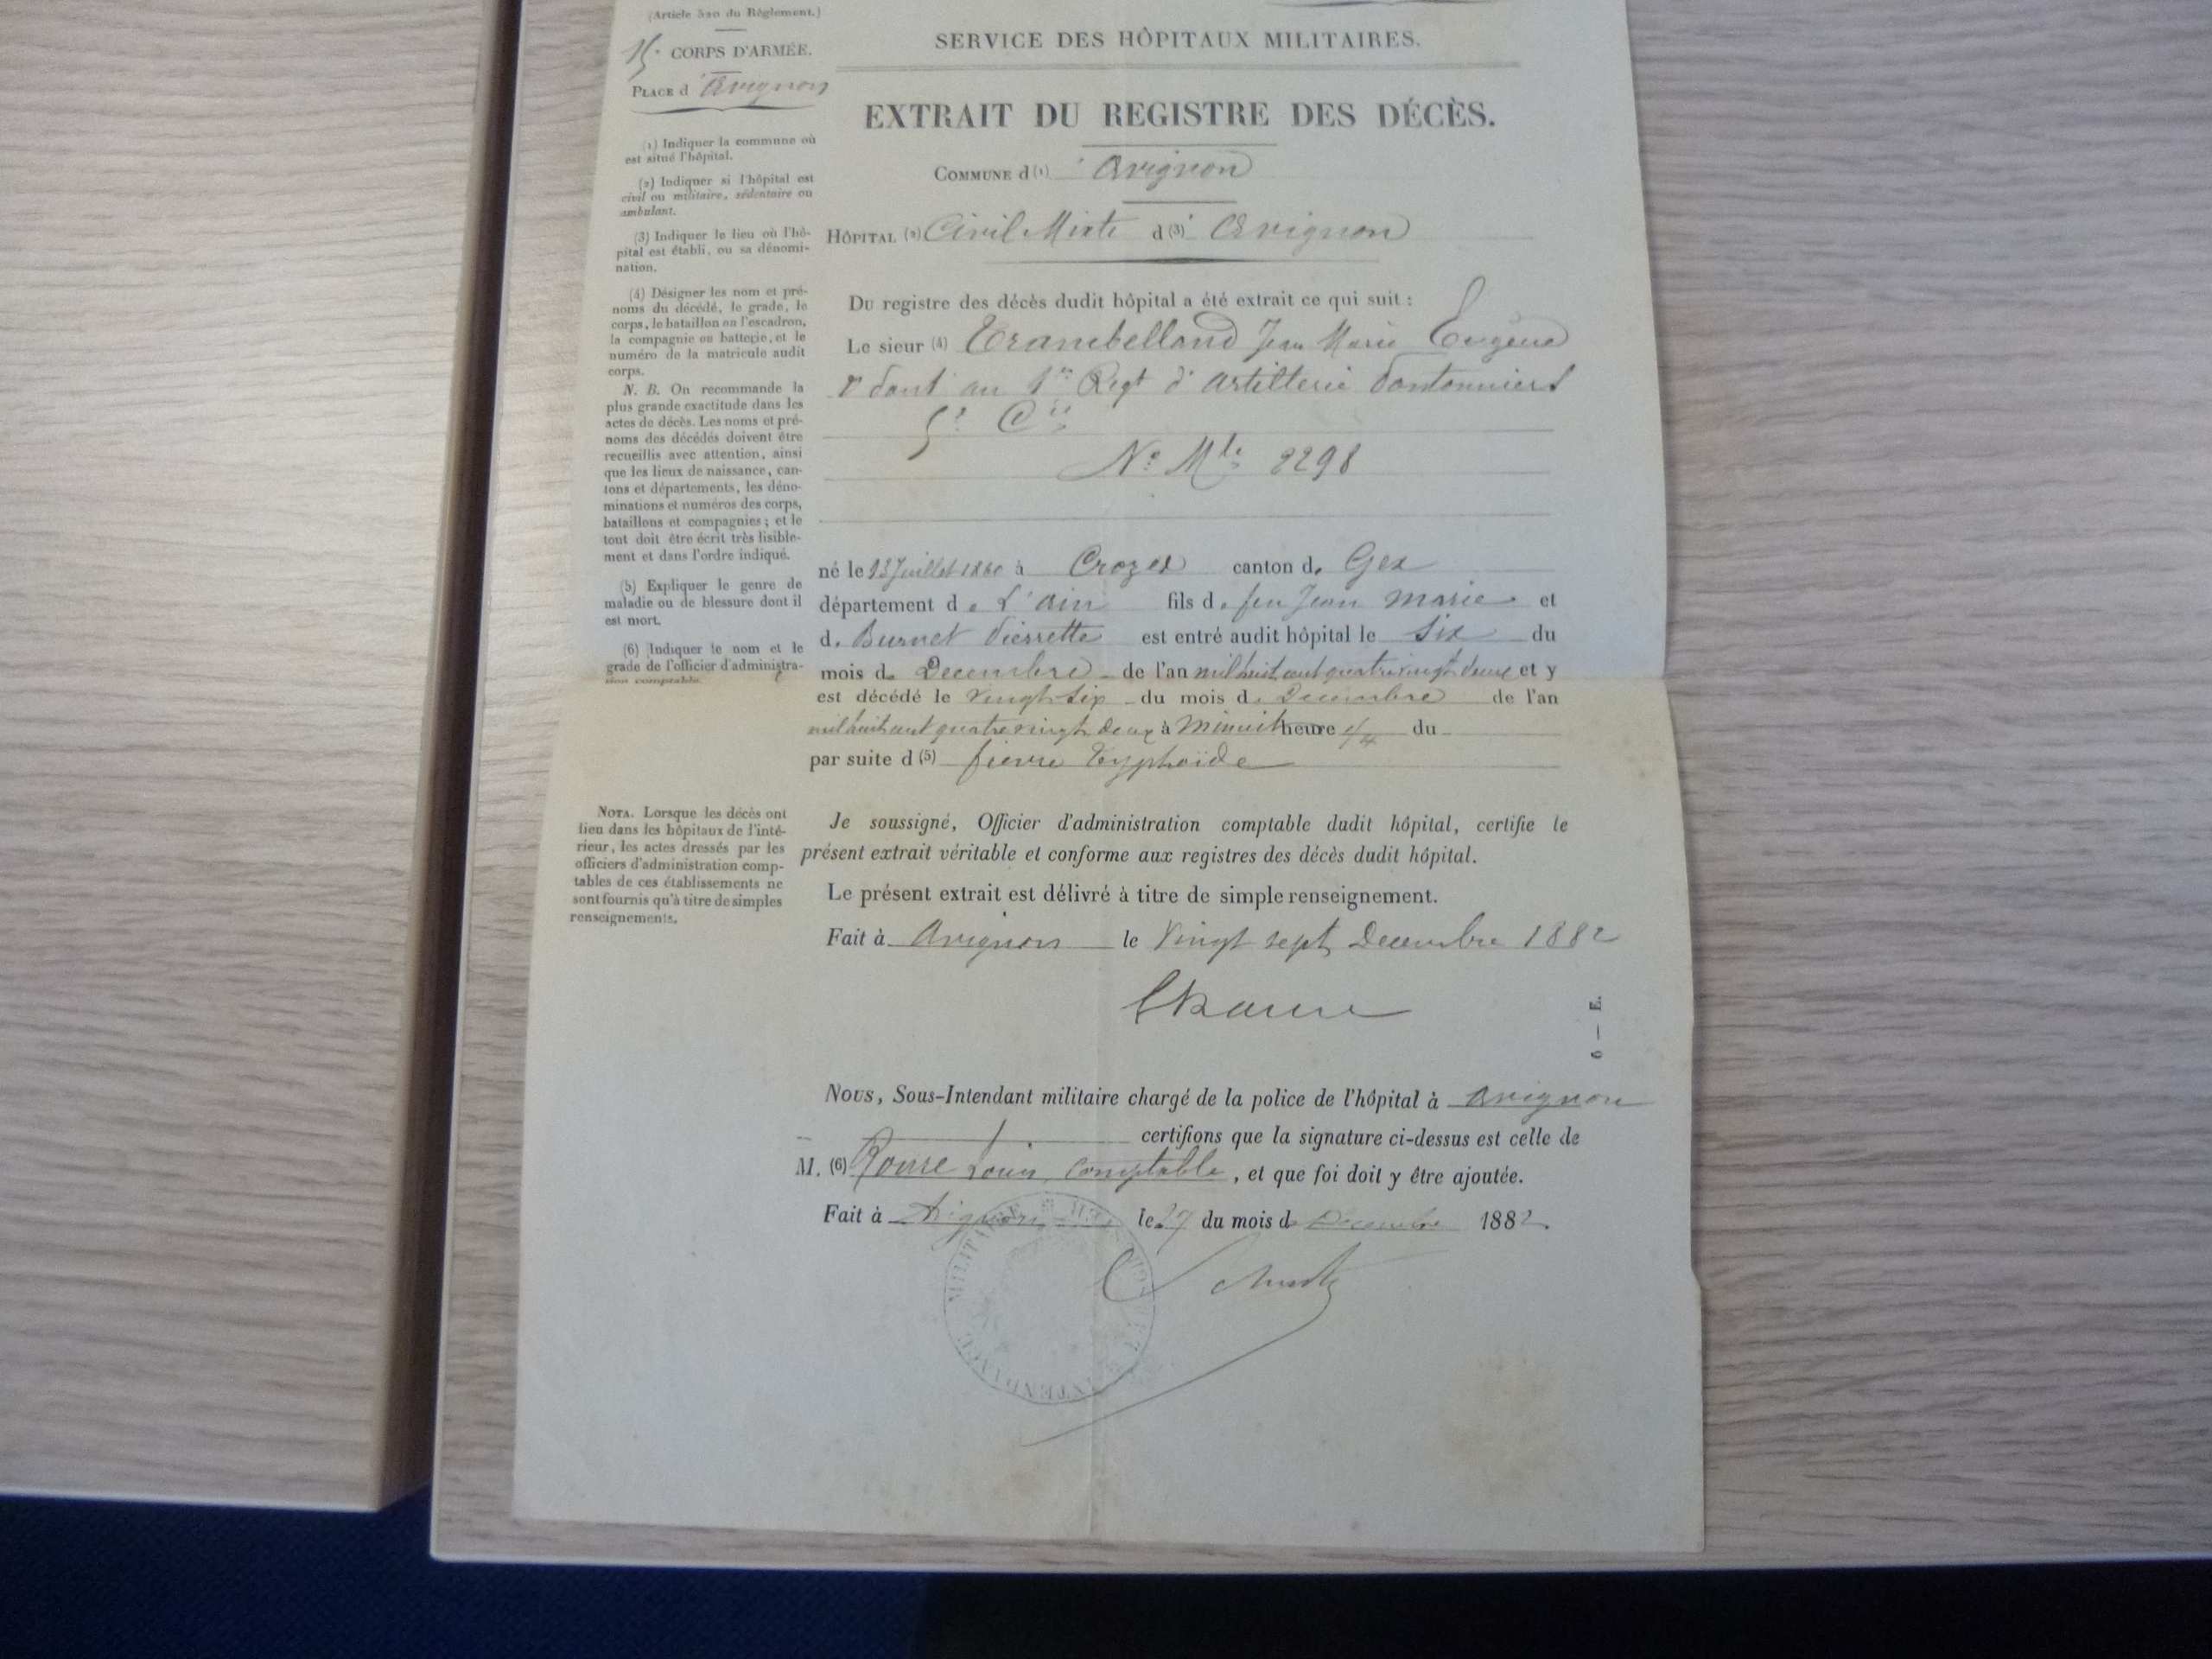 (Article 520 du Règlement.)
15e CORPS D'ARMÉE.
PLACE d'Avignon
(1) Indiquer la commune où
est situé l'hôpital.
(2) Indiquer si l'hôpital est
civil ou militaire, sédentaire ou
ambulant.
(3) Indiquer le lieu où l'hô-
pital est établi, ou sa dénomi-
nation.
(4) Désigner les nom et pré-
noms du décédé, le grade, le
corps, le bataillon ou l'escadron,
la compagnie ou batterie, et le
numéro de la matricule audit
corps.
N. B. On recommande la
plus grande exactitude dans les
actes de décès. Les noms et pré-
noms des décédés doivent être
recueillis avec attention, ainsi
que les lieux de naissance, can-
tons et départements, les déno-
minations et numéros des corps,
bataillons et compagnies; et le
tout doit être écrit très lisible-
ment et dans l'ordre indiqué.
(5) Expliquer le genre de
maladie ou de blessure dont il
est mort.
(6) Indiquer le nom et le
grade de l'officier d'administra-
tion comptable.
NOTA. Lorsque les décès ont
lieu dans les hôpitaux de l'inté-
rieur, les actes dressés par les
officiers d'administration comp-
tables de ces établissements ne
sont fournis qu'à titre de simples
renseignements.
SERVICE DES HÔPITAUX MILITAIRES.
EXTRAIT DU REGISTRE DES DÉCÈS.
COMMUNE d (1) 'Avignon
HÔPITAL (2) Civil Mixte d (3) 'Avignon
Du registre des décès dudit hôpital a été extrait ce qui suit :
Le sieur (4) Trambelland Jean Marie Eugène
au 1er Regt d'artillerie Pontonniers
5e Cie
No Mle 2298
né le 23 Juillet 1860 à Crozet canton de Gex
département de L'ain fils de feu Jean Marie et
de Burnet Pierrette est entré audit hôpital le Six du
mois de Decembre de l'an mil huit cent quatre vingt deux et y
est décédé le vingt six du mois de Decembre de l'an
mil huit cent quatre vingt deux à Minuit heure 1/4 du
par suite d (5) fievre typhoïde
Je soussigné, Officier d'administration comptable dudit hôpital, certifie le
présent extrait véritable et conforme aux registres des décès dudit hôpital.
Le présent extrait est délivré à titre de simple renseignement.
Fait à Avignon le Vingt sept Decembre 1882
6 — E.
NOUS, Sous-Intendant militaire chargé de la police de l'hôpital à Avignon
certifions que la signature ci-dessus est celle de
M. (6) Louis, Comptable, et que foi doit y être ajoutée.
Fait à Avignon le 27 du mois de Decembre 1882.
INTENDANCE MILITAIRE